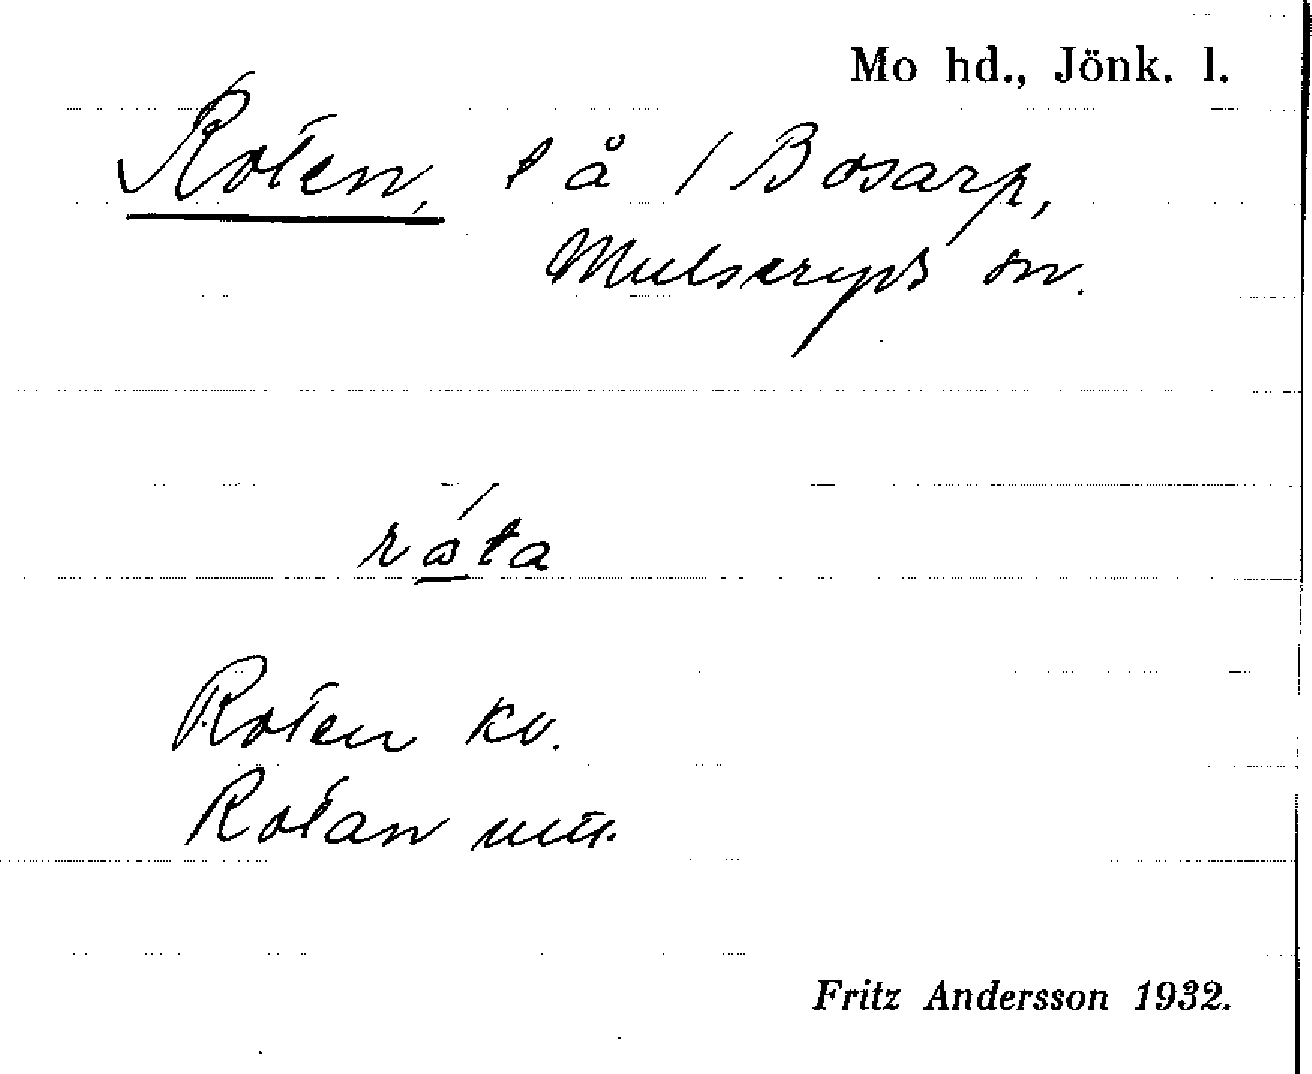 Mo hd., Jönk. l.
Roten, l å / Bosarp,
Mulseryds sn.
ráta
Roten kv.
Rotan utt.
Fritz Andersson 1932.